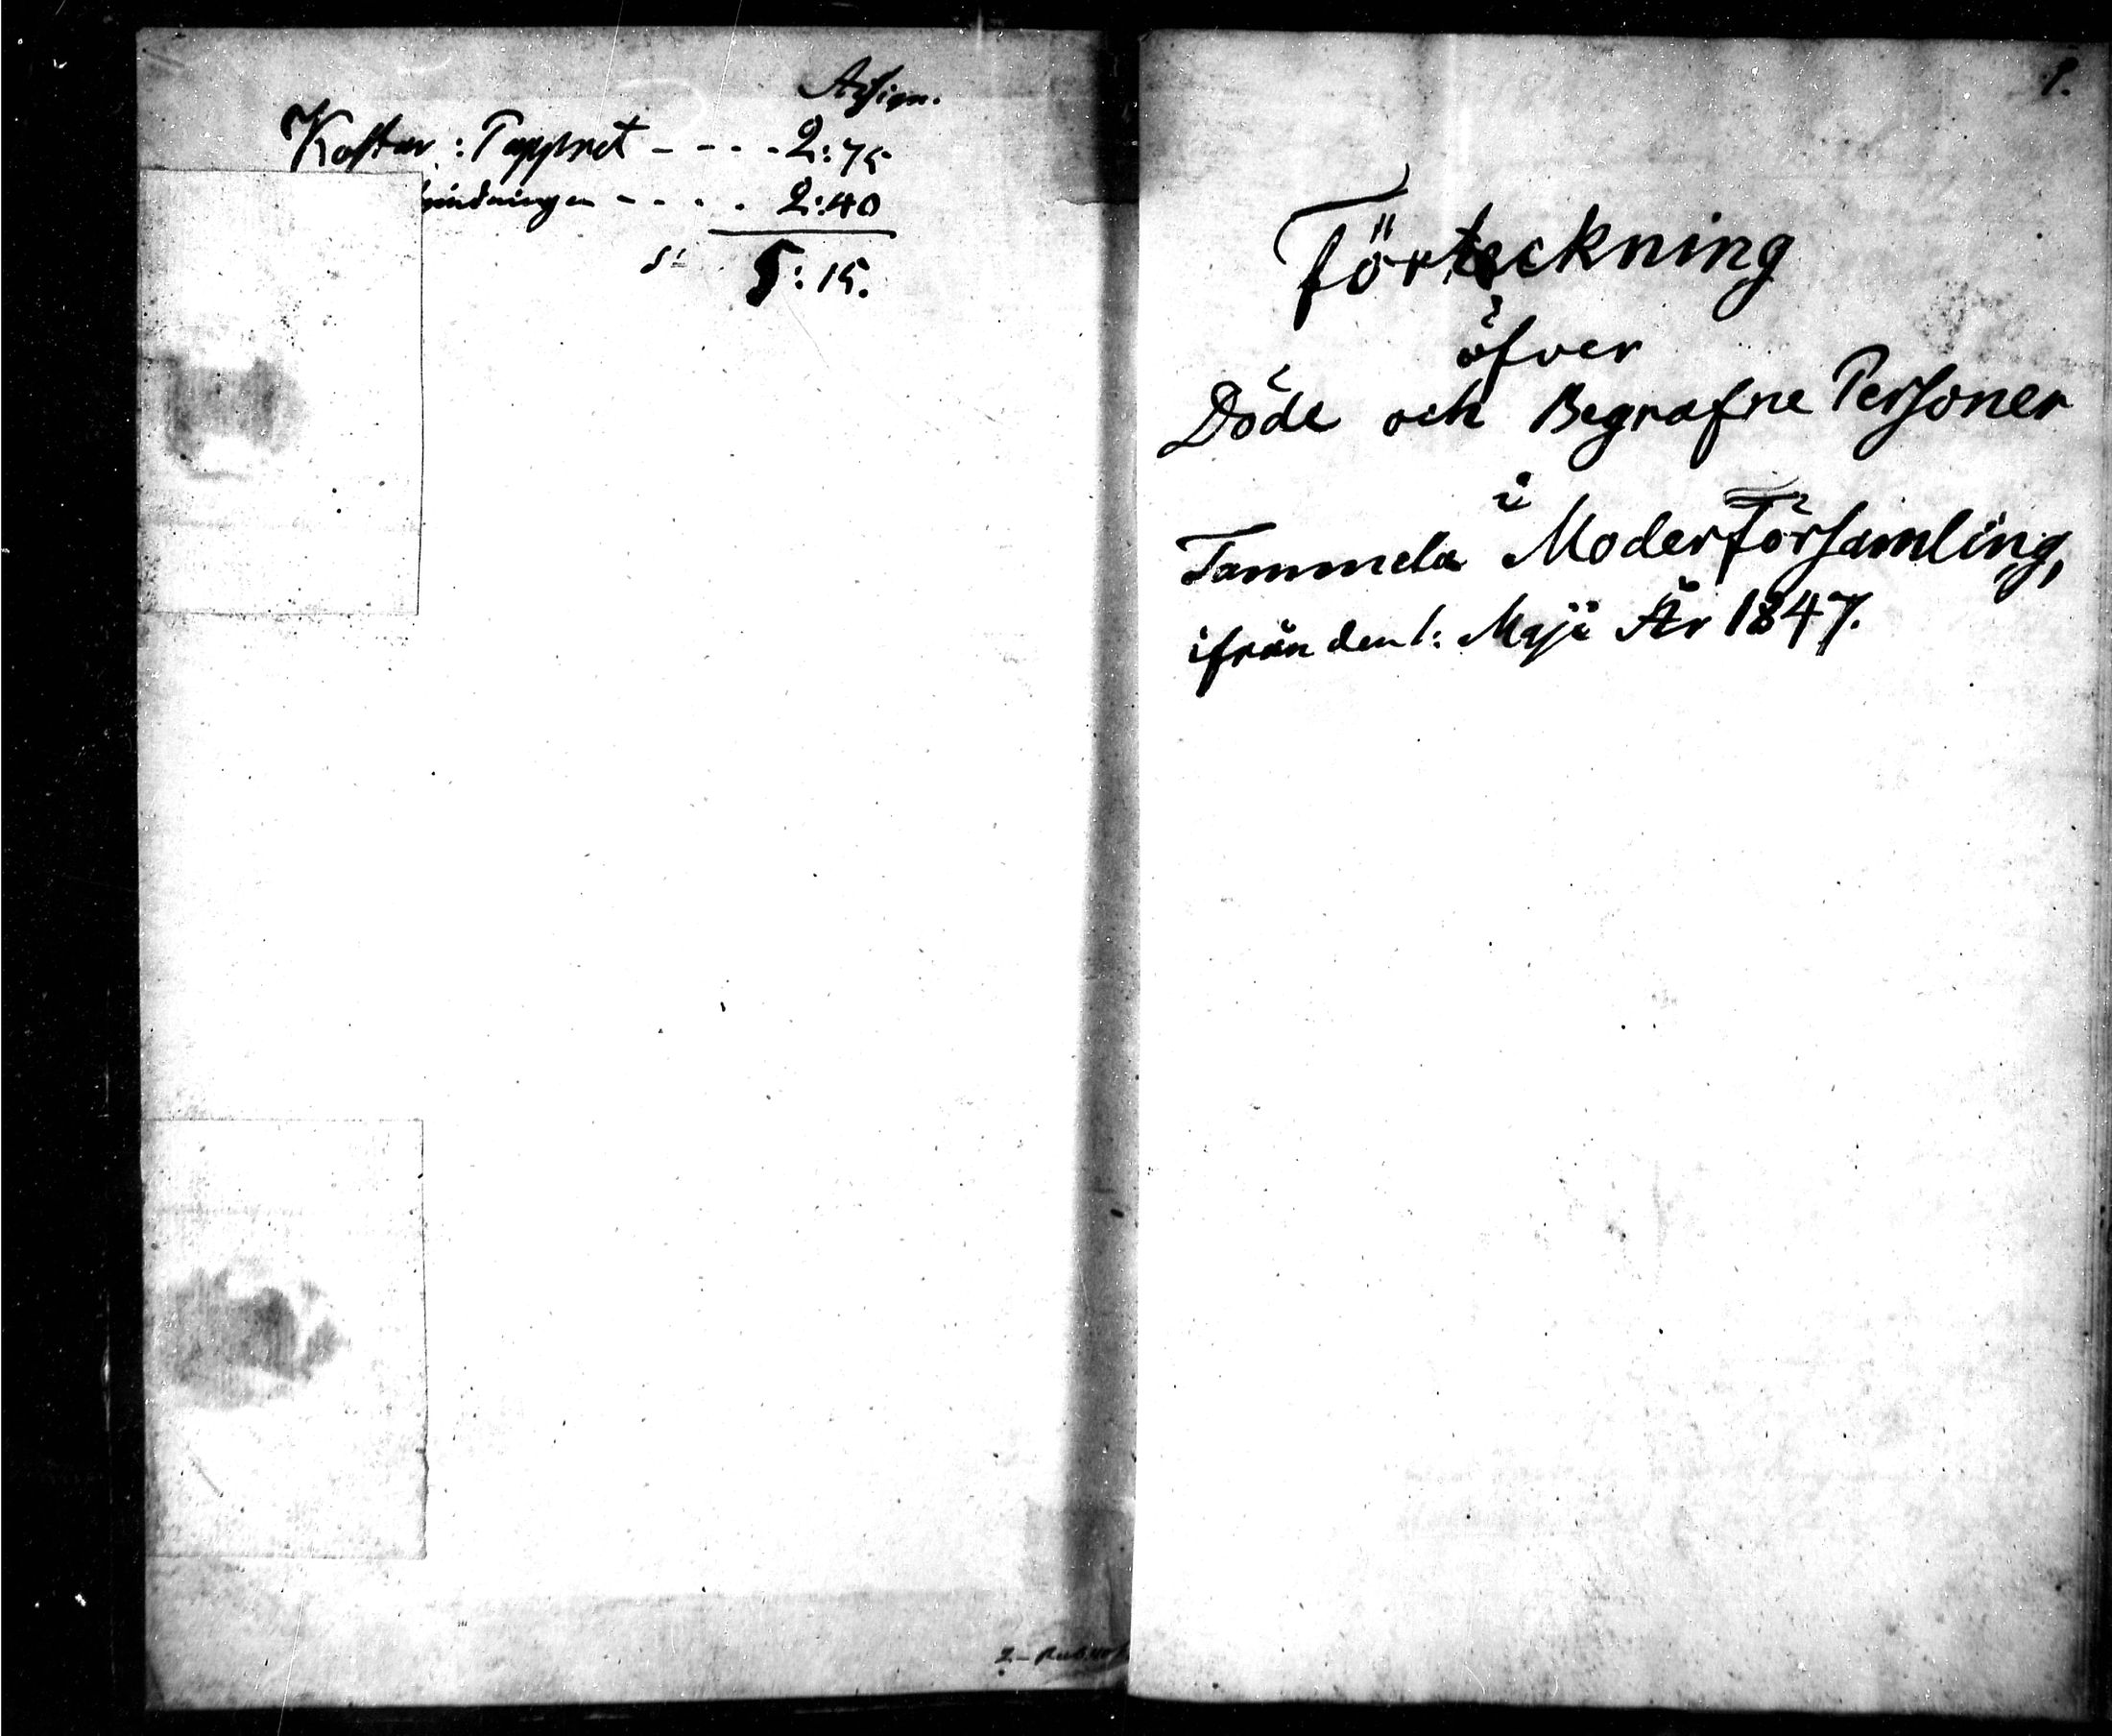 Assign.
Kostar: Pappret - - - - 2:75
bindningen - - - - 2:40
S:a 5:15.
1.
Förteckning
öfver
Döde och Begrafne Personer
i
Tammela Moderförsamling,
ifrån den 1: Maji År 1847.